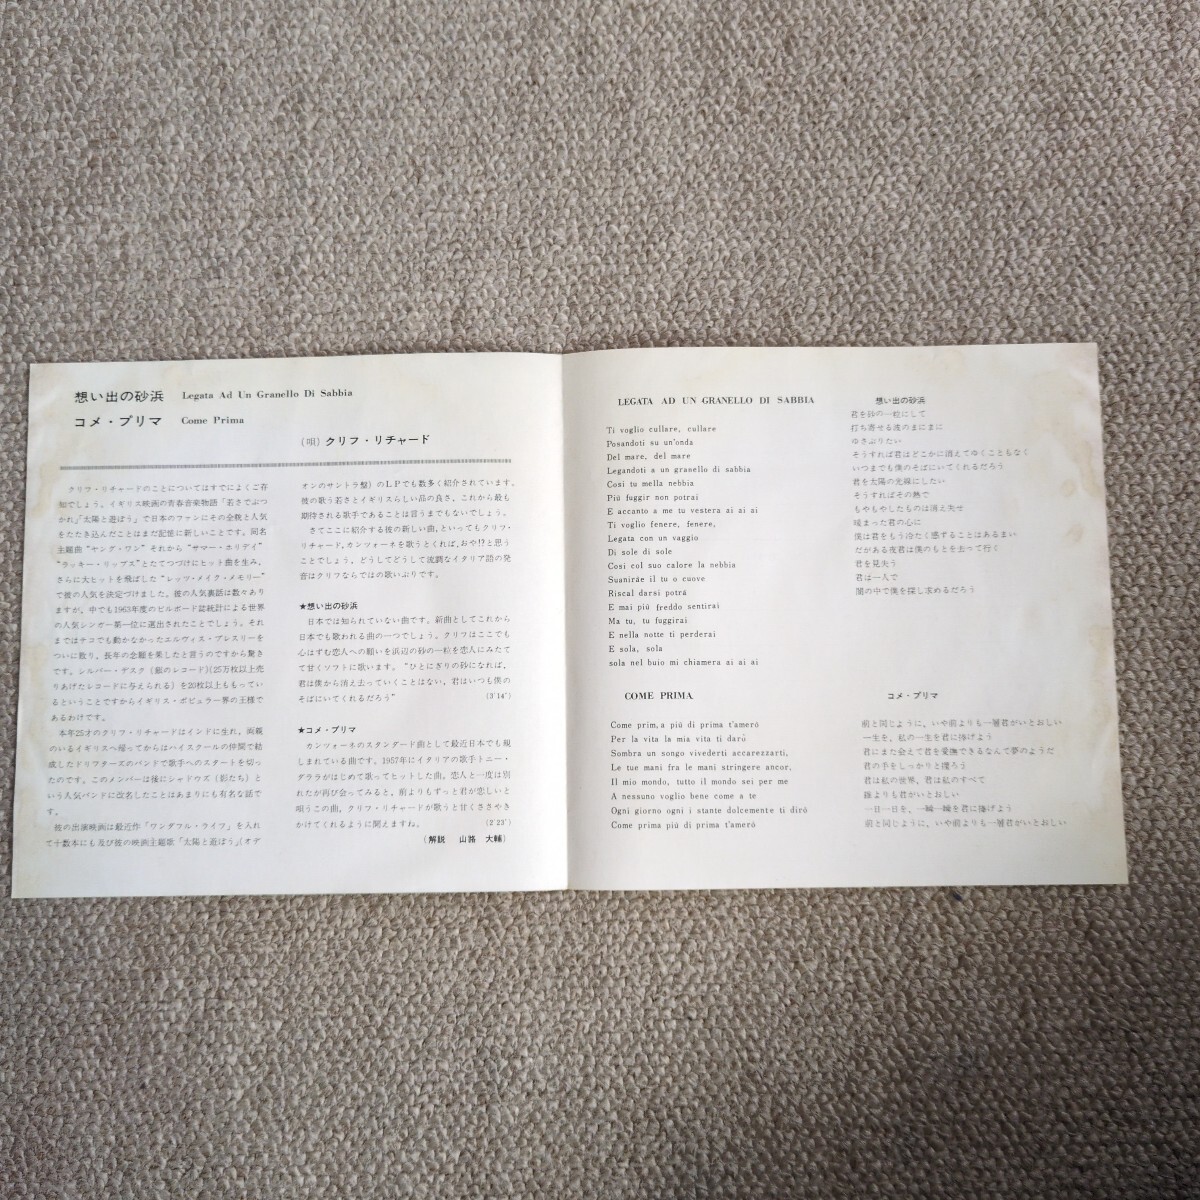 想い出の砂浜 Legata Ad Un Granello Di Sabbia
コメ・プリマ Come Prima
(唄) クリフ・リチャード
クリフ・リチャードのことについてはすでによくご存
知でしょう。イギリス映画の青春音楽物語「若さでぶつ
かれ」「太陽と遊ぼう」で日本のファンにその全貌と人気
をたたき込んだことはまだ記憶に新しいことです。同名
主題曲“ヤング・ワン”それから“サマー・ホリデイ”
“ラッキー・リップス”とたてつづけにヒット曲を生み、
さらに大ヒットを飛ばした“レッツ・メイク・メモリー”
で彼の人気を決定づけました。彼の人気裏話は数々あり
ますが、中でも1963年度のビルボード誌統計による世界
の人気シンガー第一位に選出されたことでしょう。それ
まではテコでも動かなかったエルヴィス・プレスリーを
ついに破り、長年の念願を果したと言うのですから驚き
です。シルバー・デスク(銀のレコード)(25万枚以上売
りあげたレコードに与えられる)を20枚以上ももってい
るということですからイギリス・ポピュラー界の王様で
あるわけです。
本年25才のクリフ・リチャードはインドに生れ、両親
のいるイギリスへ帰ってからはハイスクールの仲間で結
成したドリフターズのバンドで歌手へのスタートを切っ
たのです。このメンバーは後にシャドウズ(影たち)と
いう人気バンドに改名したことはあまりにも有名な話で
す。
彼の出演映画は最近作「ワンダフル・ライフ」を入れ
て十数本にも及び彼の映画主題歌「太陽と遊ぼう」(オデ
オンのサントラ盤)のLPでも数多く紹介されています。
彼の歌う若さとイギリスらしい品の良さ、これから最も
期待される歌手であることは言うまでもないでしょう。
さてここに紹介する彼の新しい曲、といってもクリフ・
リチャード、カンツォーネを歌うとくれば、おや!?と思う
ことでしょう。どうしてどうして流調なイタリア語の発
音はクリフならではの歌いぶりです。
★想い出の砂浜
日本では知られていない曲です。新曲としてこれから
日本でも歌われる曲の一つでしょう。クリフはここでも
心はずむ恋人への願いを浜辺の砂の一粒を恋人にみたて
て甘くソフトに歌います。“ひとにぎりの砂になれば、
君は僕から消え去っていくことはない、君はいつも僕の
そばにいてくれるだろう” (3′14″)
★コメ・プリマ
カンツォーネのスタンダード曲として最近日本でも親
しまれている曲です。1957年にイタリアの歌手トニー・
ダララがはじめて歌ってヒットした曲。恋人と一度は別
れたが再び会ってみると、前よりもずっと君が恋しいと
唄うこの曲、クリフ・リチャードが歌うと甘くささやき
かけてくれるように聞えますね。 (2′23″)
(解説 山路 大輔)
LEGATA AD UN GRANELLO DI SABBIA
Ti voglio cullare, cullare
Posandoti su un'onda
Del mare, del mare
Legandoti a un granello di sabbia
Cosi tu mella nebbia
Più fuggir non potrai
E accanto a me tu vestera ai ai ai
Ti voglio fenere, fenere,
Legata con un vaggio
Di sole di sole
Cosi col suo calore la nebbia
Suaniräe il tu o cuove
Riscal darsi potrà
E mai più freddo sentirai
Ma tu, tu fuggirai
E nella notte ti perderai
E sola, sola
sola nel buio mi chiamera ai ai ai
COME PRIMA
Come prim, a più di prima t'amerò
Per la vita la mia vita ti darò
Sombra un songo vivederti accarezzarti,
Le tue mani fra le mani stringere ancor,
Il mio mondo, tutto il mondo sei per me
A nessuno voglio bene come a te
Ogni giorno ogni i stante dolcemente ti dirò
Come prima più di prima t'amerò
想い出の砂浜
君を砂の一粒にして
打ち寄せる波のまにまに
ゆさぶりたい
そうすれば君はどこかに消えてゆくこともなく
いつまでも僕のそばにいてくれるだろう
君を太陽の光線にしたい
そうすればその熱で
もやもやしたものは消え失せ
暖まった君の心に
僕は君をもう冷たく感ずることはあるまい
だがある夜君は僕のもとを去って行く
君を見失う
君は一人で
闇の中で僕を探し求めるだろう
コメ・プリマ
前と同じように、いや前よりも一層君がいとおしい
一生を、私の一生を君に捧げよう
君にまた会えて君を愛撫できるなんて夢のようだ
君の手をしっかりと握ろう
君は私の世界、君は私のすべて
誰よりも君がいとおしい
一日一日を、一瞬一瞬を君に捧げよう
前と同じように、いや前よりも一層君がいとおしい